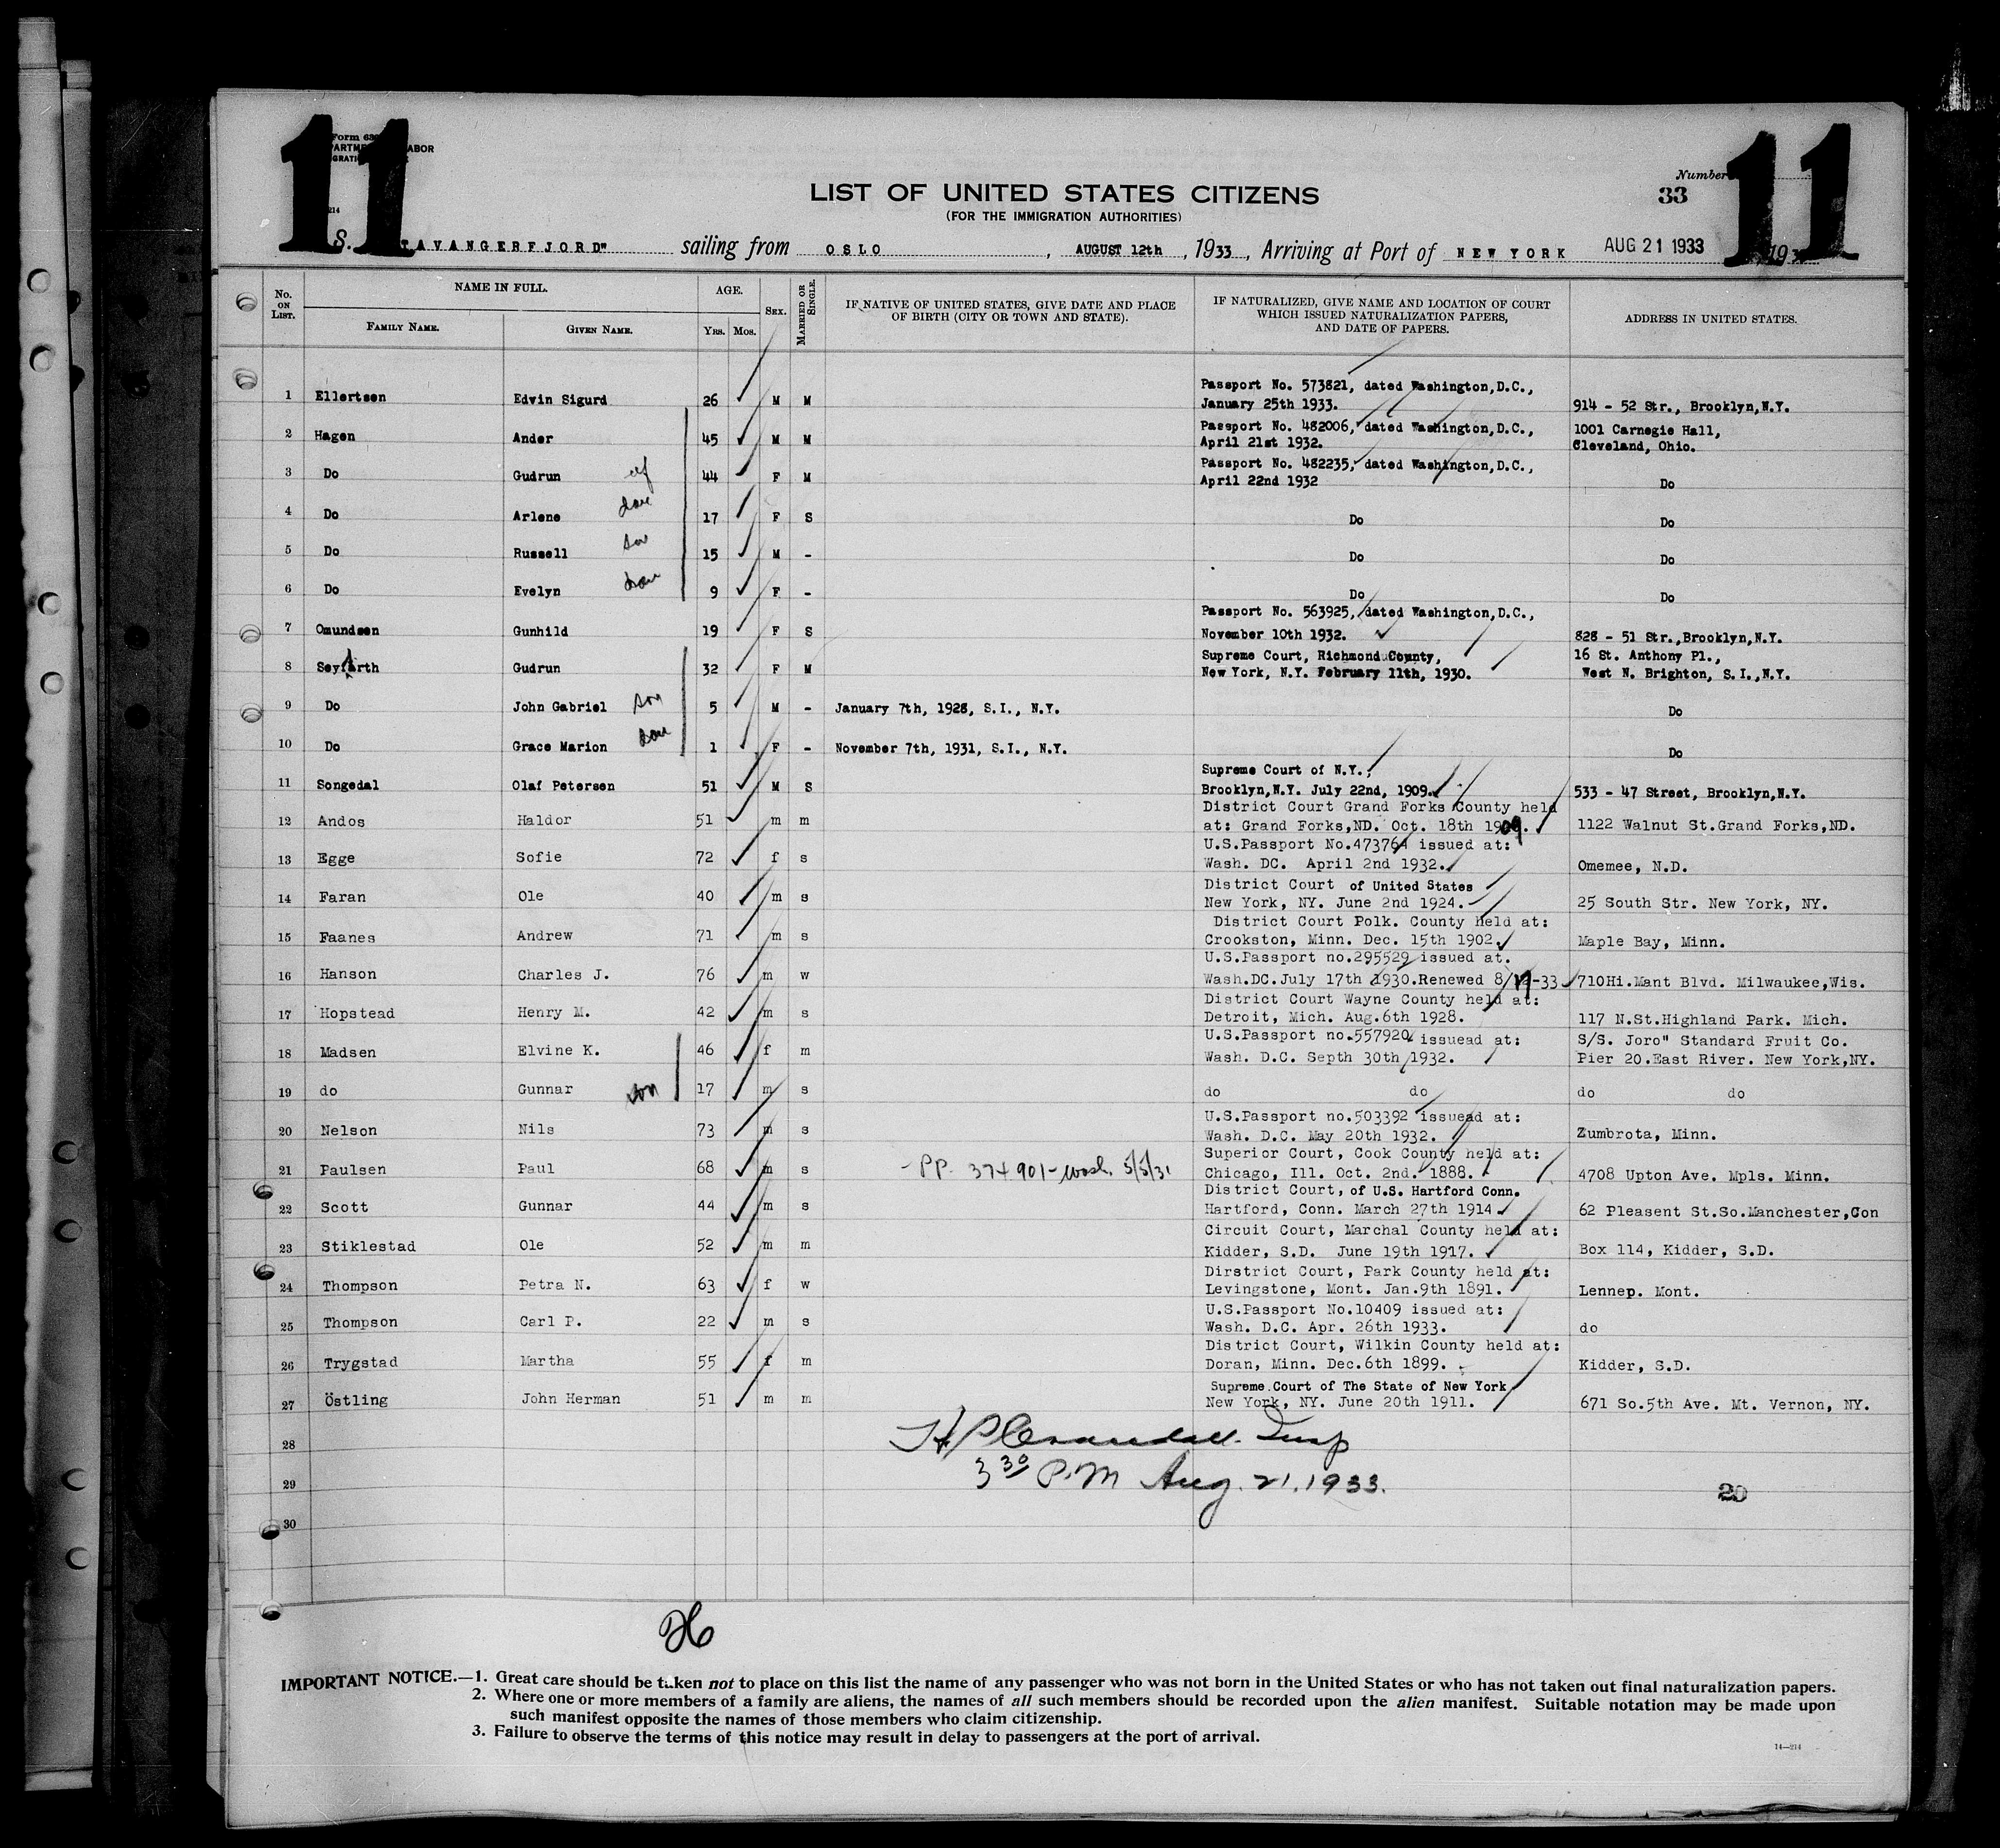 11
11
Form 630
ABOR
Number
33
LIST OF UNITED STATES CITIZENS
(FOR THE IMMIGRATION AUTHORITIES)
S. TAVANGERFJORD" sailing from OSLO, AUGUST 12th, 1933, Arriving at Port of NEW YORK AUG 21 1933 193
No. ON LIST. NAME IN FULL. AGE. SEX. MARRIED OR SINGLE. IF NATIVE OF UNITED STATES, GIVE DATE AND PLACE OF BIRTH (CITY OR TOWN AND STATE). IF NATURALIZED, GIVE NAME AND LOCATION OF COURT WHICH ISSUED NATURALIZATION PAPERS, AND DATE OF PAPERS. ADDRESS IN UNITED STATES.
FAMILY NAME. GIVEN NAME. YRS. MOS.
Passport No. 573821, dated Washington,D.C.,
1 Ellertsen Edvin Sigurd 26 M M January 25th 1933. 914 - 52 Str., Brooklyn,N.Y.
Passport No. 482006, dated Washington,D.C., 1001 Carnegie Hall,
2 Hagen Ander 45 M M April 21st 1932. Cleveland, Ohio.
Passport No. 482235, dated Washington,D.C.,
3 Do Gudrun wf 44 F M April 22nd 1932 Do
4 Do Arlene dau 17 F S Do Do
5 Do Russell son 15 M - Do Do
6 Do Evelyn dau 9 F - Do Do
Passport No. 563925, dated Washington,D.C.,
7 Omundsen Gunhild 19 F S November 10th 1932. 828 - 51 Str.,Brooklyn,N.Y.
Supreme Court, Richmond County, 16 St. Anthony Pl.,
8 Seyfarth Gudrun 32 F M New York, N.Y. February 11th, 1930. West N. Brighton, S.I.,N.Y.
9 Do John Gabriel son 5 M - January 7th, 1928, S.I., N.Y. Do
10 Do Grace Marion dau 1 F - November 7th, 1931, S.I., N.Y. Do
Supreme Court of N.Y.,
11 Songedal Olaf Petersen 51 M S Brooklyn,N.Y. July 22nd, 1909. 533 - 47 Street, Brooklyn,N.Y.
District Court Grand Forks County held
12 Andos Haldor 51 m m at: Grand Forks,ND. Oct. 18th 1909. 1122 Walnut St.Grand Forks,ND.
U.S.Passport No.473764 issued at:
13 Egge Sofie 72 f s Wash. DC. April 2nd 1932. Omemee, N.D.
District Court of United States
14 Faran Ole 40 m s New York, NY. June 2nd 1924. 25 South Str. New York, NY.
District Court Polk. County held at:
15 Faanes Andrew 71 m s Crookston, Minn. Dec. 15th 1902. Maple Bay, Minn.
U.S.Passport no.295529 issued at.
16 Hanson Charles J. 76 m w Wash.DC.July 17th 1930.Renewed 8/17-33 710Hi.Mant Blvd. Milwaukee,Wis.
District Court Wayne County held at:
17 Hopstead Henry M. 42 m s Detroit, Mich. Aug.6th 1928. 117 N.St.Highland Park. Mich.
U.S.Passport no.557920 issuead at: S/S. Joro" Standard Fruit Co.
18 Madsen Elvine K. 46 f m Wash. D.C. Septh 30th 1932. Pier 20.East River. New York,NY.
19 do Gunnar son 17 m s do do do do
U.S.Passport no.503392 issuead at:
20 Nelson Nils 73 m s Wash. D.C. May 20th 1932. Zumbrota, Minn.
Superior Court, Cook County held at:
21 Paulsen Paul 68 m s - PP. 374901 - Wash. 5/5/31 Chicago, Ill. Oct. 2nd. 1888. 4708 Upton Ave. Mpls. Minn.
District Court, of U.S. Hartford Conn.
22 Scott Gunnar 44 m s Hartford, Conn. March 27th 1914 62 Pleasent St.So.Manchester,Con
Circuit Court, Marchal County held at:
23 Stiklestad Ole 52 m m Kidder, S.D. June 19th 1917. Box 114, Kidder, S.D.
Dirstrict Court, Park County held at:
24 Thompson Petra N. 63 f w Levingstone, Mont. Jan.9th 1891. Lennep. Mont.
U.S.Passport No.10409 issued at:
25 Thompson Carl P. 22 m s Wash. D.C. Apr. 26th 1933. do
District Court, Wilkin County held at:
26 Trygstad Martha 55 f m Doran, Minn. Dec.6th 1899. Kidder, S.D.
Supreme Court of The State of New York
27 Östling John Herman 51 m m New York, NY. June 20th 1911. 671 So.5th Ave. Mt. Vernon, NY.
28 Insp
29 3 30 P.M Aug. 21, 1933. 20
30
26
IMPORTANT NOTICE.—1. Great care should be taken not to place on this list the name of any passenger who was not born in the United States or who has not taken out final naturalization papers.
2. Where one or more members of a family are aliens, the names of all such members should be recorded upon the alien manifest. Suitable notation may be made upon
such manifest opposite the names of those members who claim citizenship.
3. Failure to observe the terms of this notice may result in delay to passengers at the port of arrival.
14—214